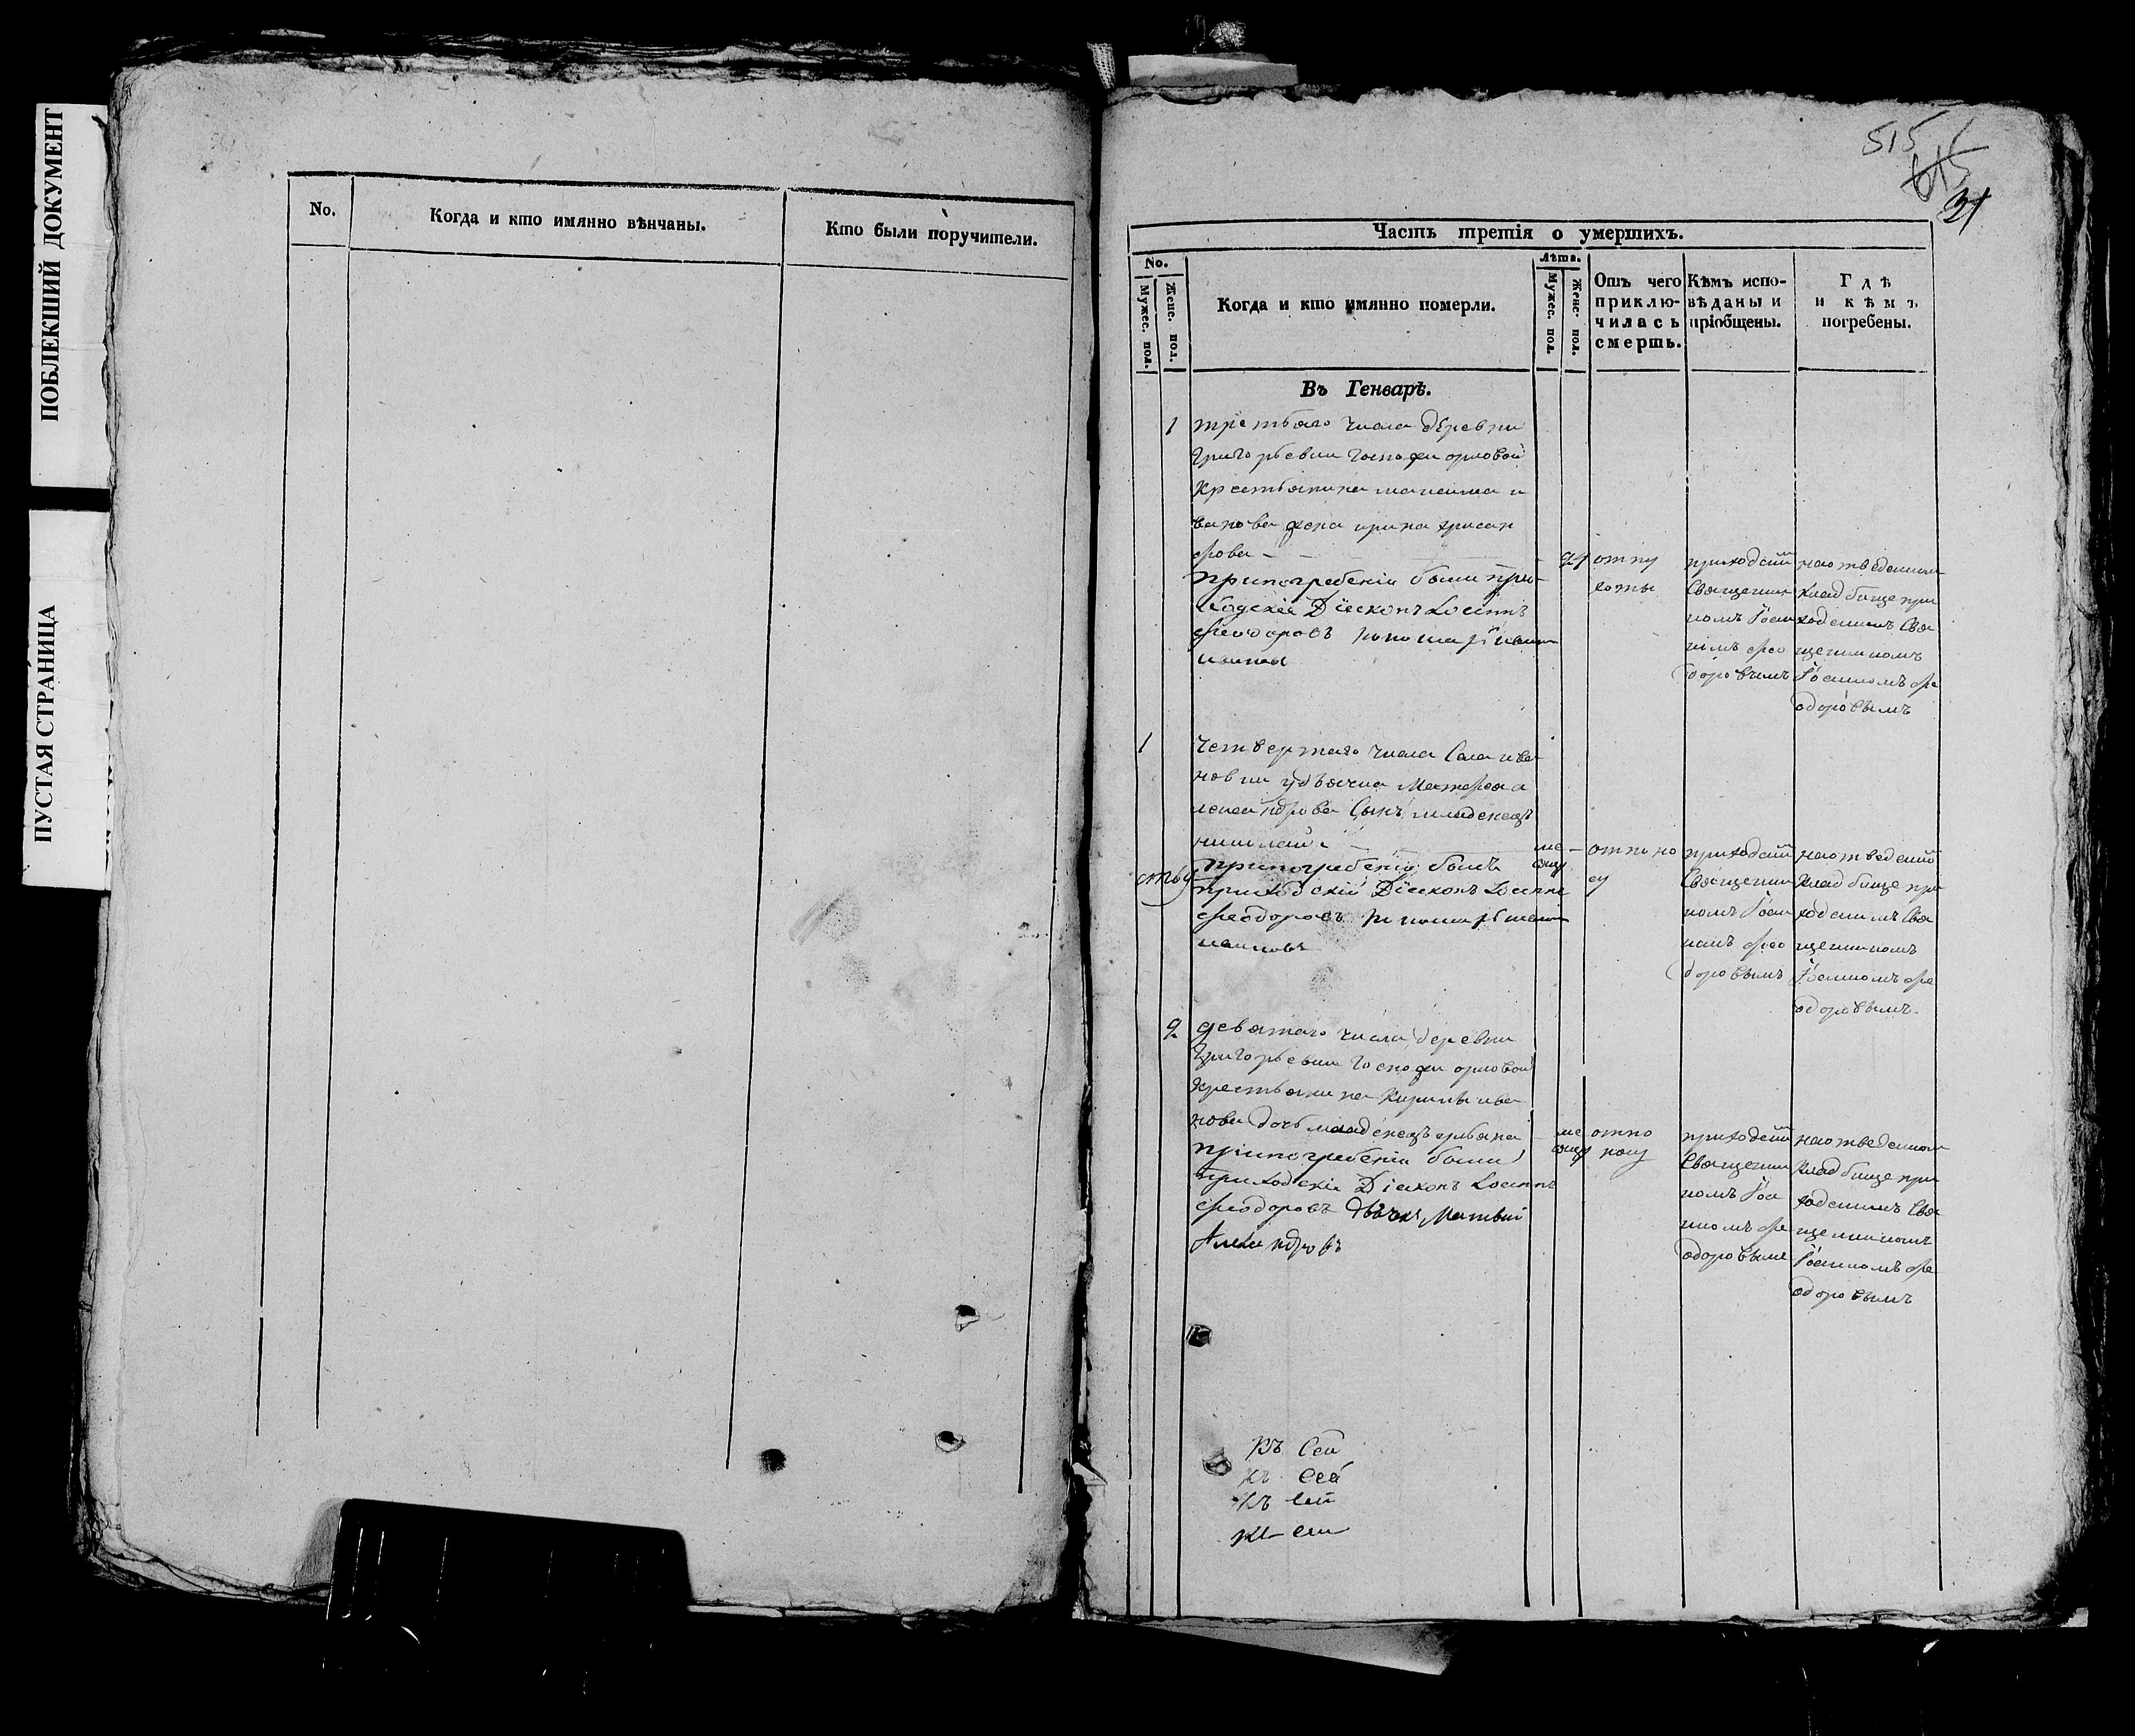 ПОБЛЕКШИЙ ДОКУМЕНТ
ПУСТАЯ СТРАНИЦА
No.
Когда и кто имянно вѣнчаны.
Кто были поручители.
515
615
31
Часть третія о умершихъ.
No.
Мужес. пол.
Женс. пол.
Когда и кто имянно померли.
Лѣта.
Мужес. пол.
Женс. пол.
Отъ чего
приклю-
чилась
смерть.
Кѣмъ испо-
вѣданы и
пріобщены.
Гдѣ
и кѣмъ
погребены.
Въ Генварѣ.
1
третьяго числа деревни
Григорьевки Госпожи орловой
Крестьянина максима и
ванова жена ирина хрисан
фова
припогребеніи были при
ходскіе Діаконъ Іоаннъ
Феодоровъ
отпу
хоты
приходскій
Священни
комъ Іоан
номъ фео
доровымъ
наотведенном
кладбище при
ходскимъ Свя
щенникомъ
Іоанномъ фе
одоровымъ
1
четвертаго числа Села ива
новки
сынъ младенецъ
николай
припогребеніи былъ
приходскій Діаконъ Іоаннъ
Феодоровъ
ме
сяцъ
отпоно
су
приходскій
Священни
комъ Іоан
номъ фео
доровымъ
наотведенной
кладбище при
ходскимъ Свя
щенникомъ
Іоанномъ фе
одоровымъ
2
девятаго числа деревни
Григорьевки Госпожи орловой
крестьянина Кирилы ива
нова дочь младенецъ ульяна
припогребеніи были
приходскіе Діаконъ Іоаннъ
Феодоровъ дьячекъ Матвей
Александровъ
ме
сяцъ
отпо
носу
приходскій
Священни
комъ Іоа
нномъ фе
одоровымъ
наотведенном
кладбище при
ходскимъ Свя
щенникомъ
Іоанномъ фе
одоровымъ
къ сей
къ сей
къ сей
къ сей